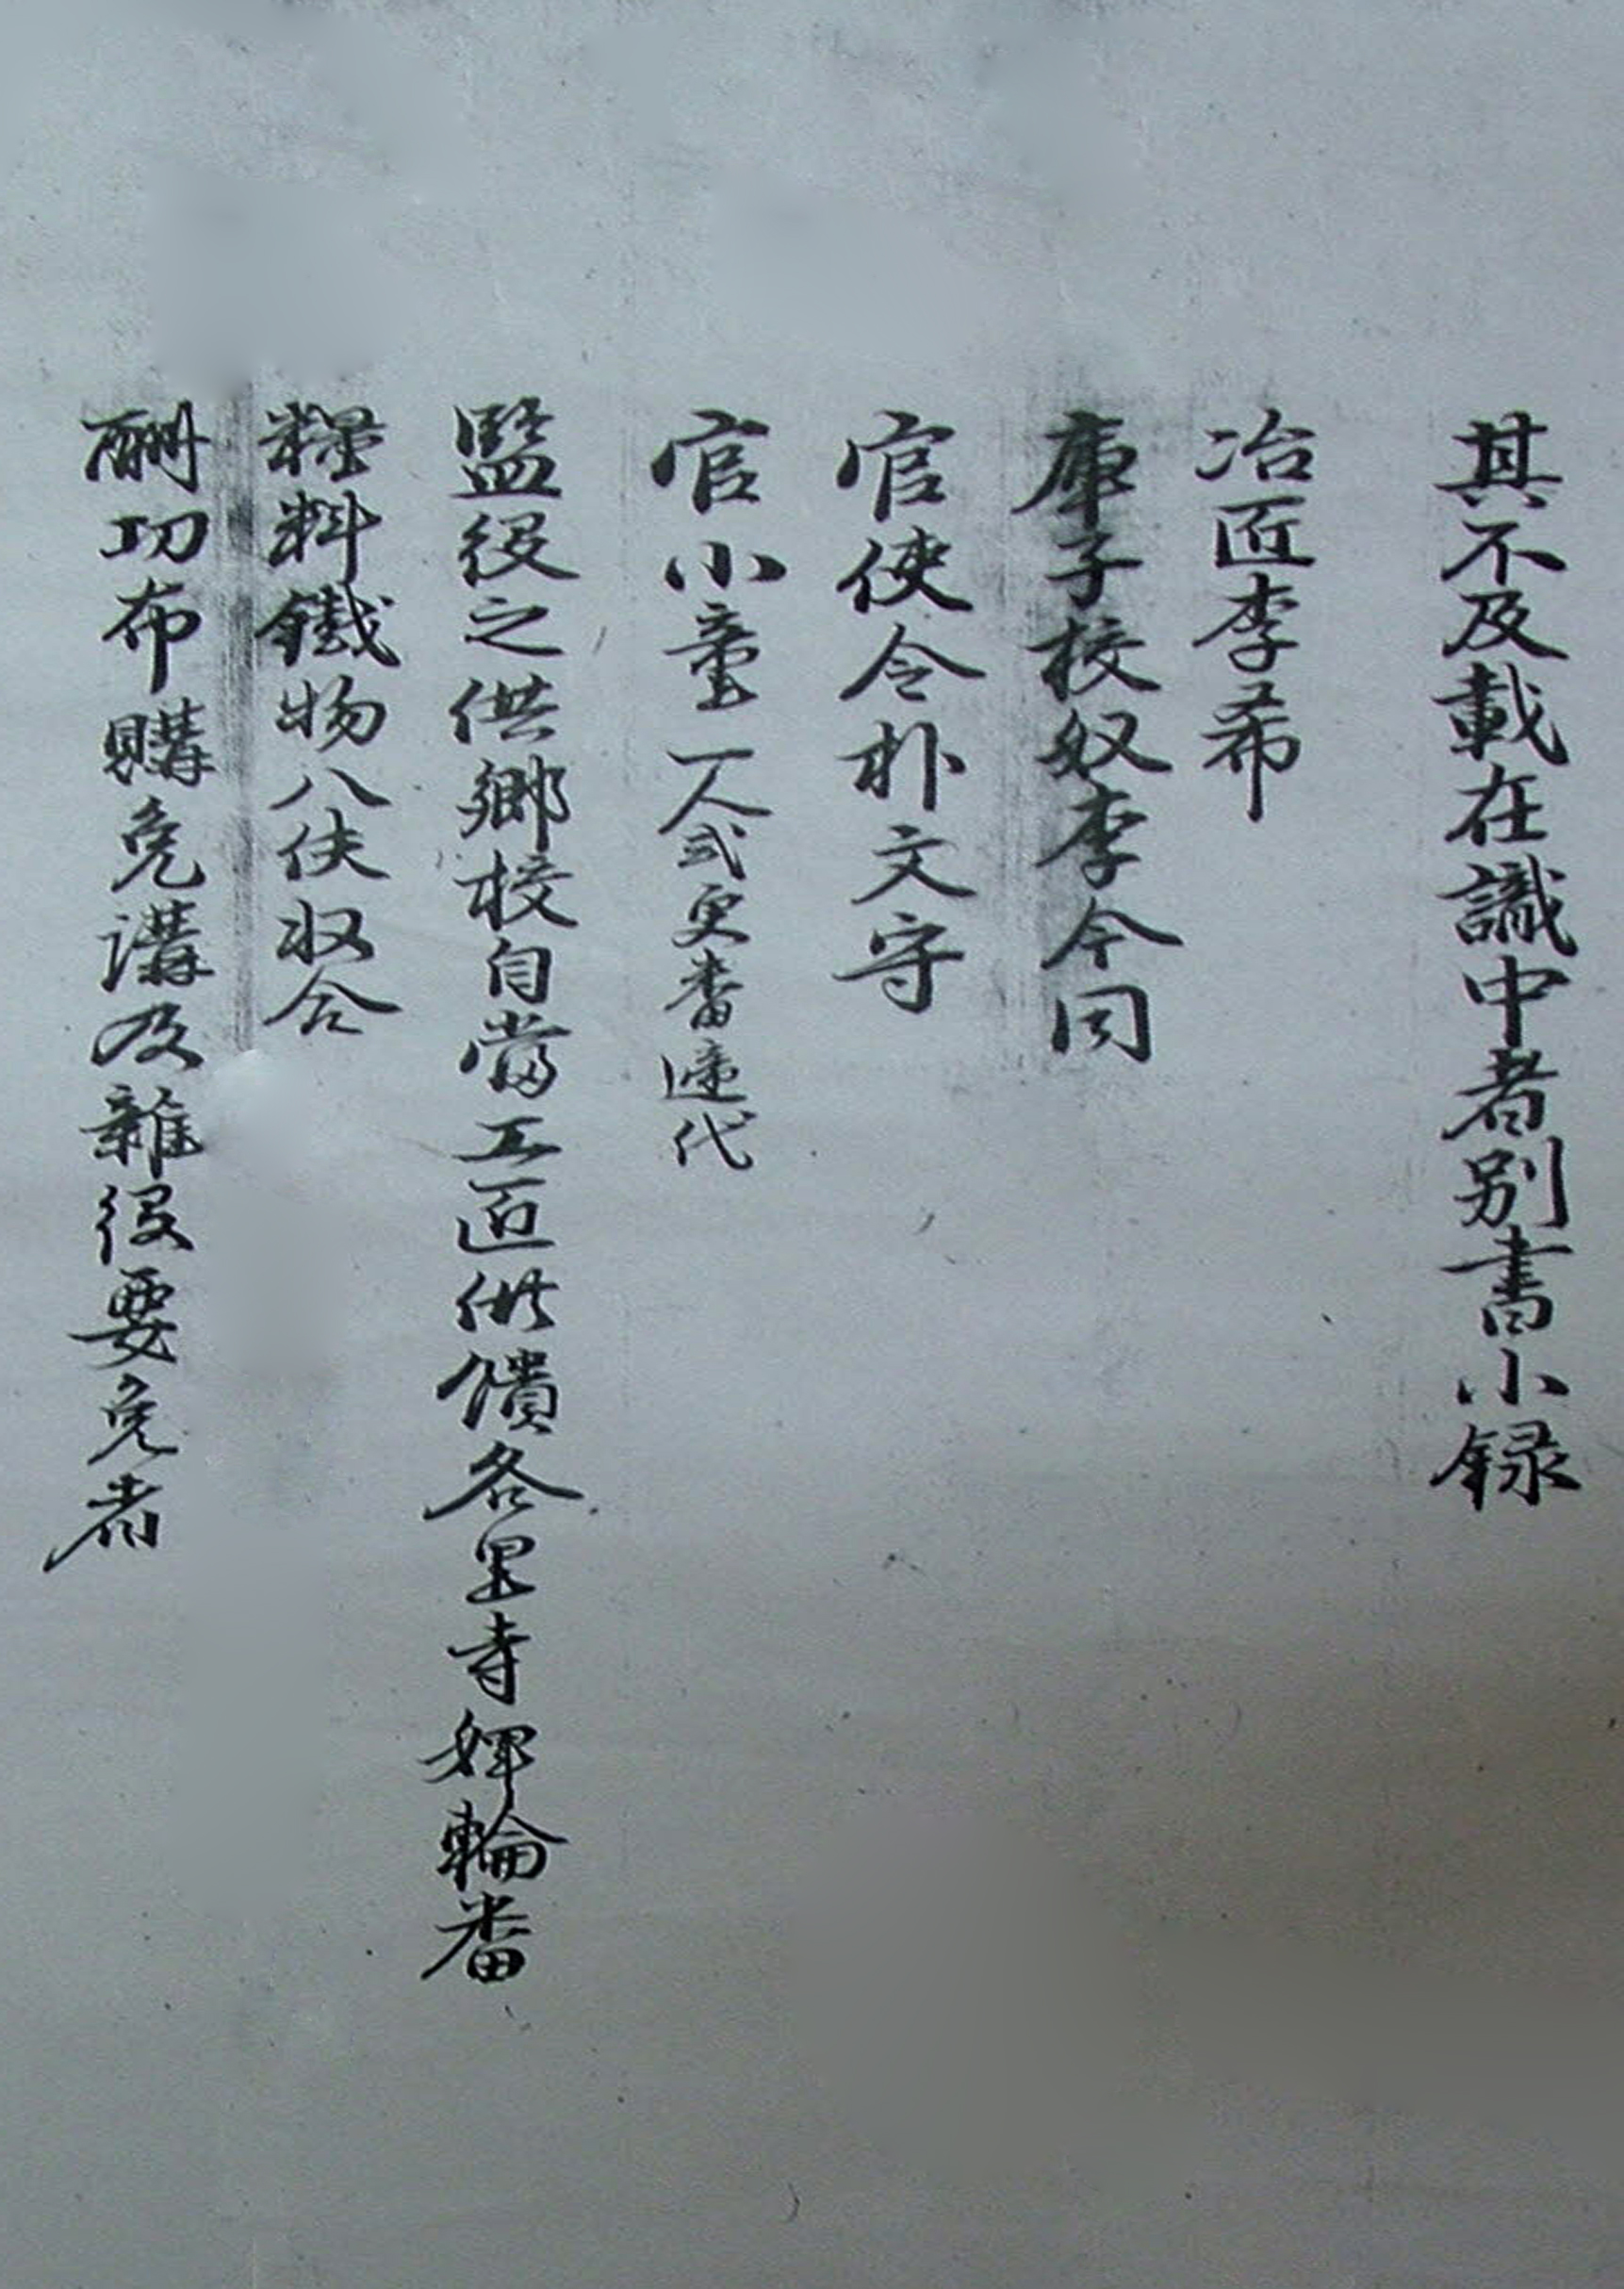 其不及載在識中者別書小録
冶匠李希
庫子校奴李今同
官使令朴文守
官小童一人式更番遆代
監役之供鄕校自當工匠供饋各里寺輪番
粮料鐵物八伕収合
酬功布購免講及雜役要免者